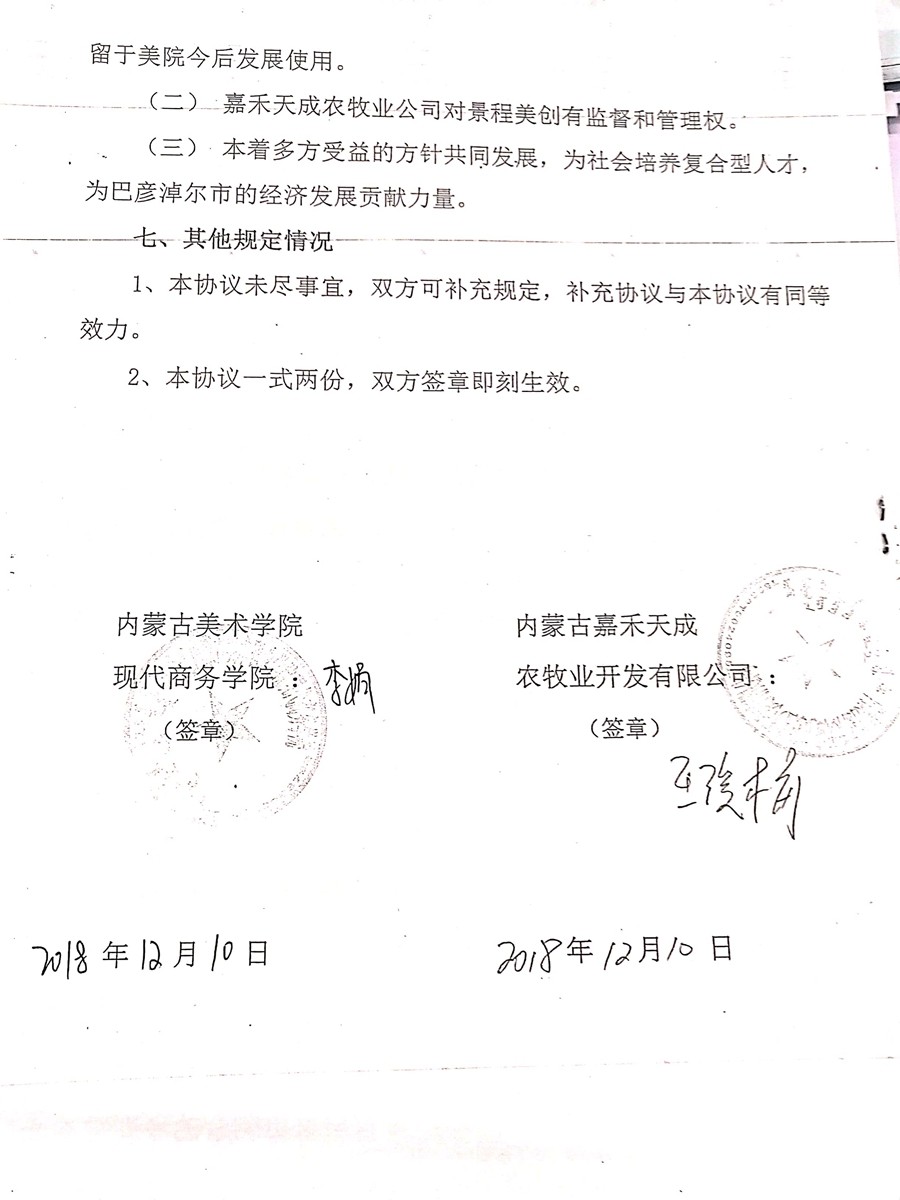 留于美院今后发展使用。
（二） 嘉禾天成农牧业公司对景程美创有监督和管理权。
（三） 本着多方受益的方针共同发展，为社会培养复合型人才，
为巴彦淖尔市的经济发展贡献力量。
七、其他规定情况
1、本协议未尽事宜，双方可补充规定，补充协议与本协议有同等
效力。
2、本协议一式两份，双方签章即刻生效。
内蒙古美术学院
现代商务学院 ：李娟
（签章）
2018年12月10日
内蒙古嘉禾天成
农牧业开发有限公司：
（签章）
2018年12月10日